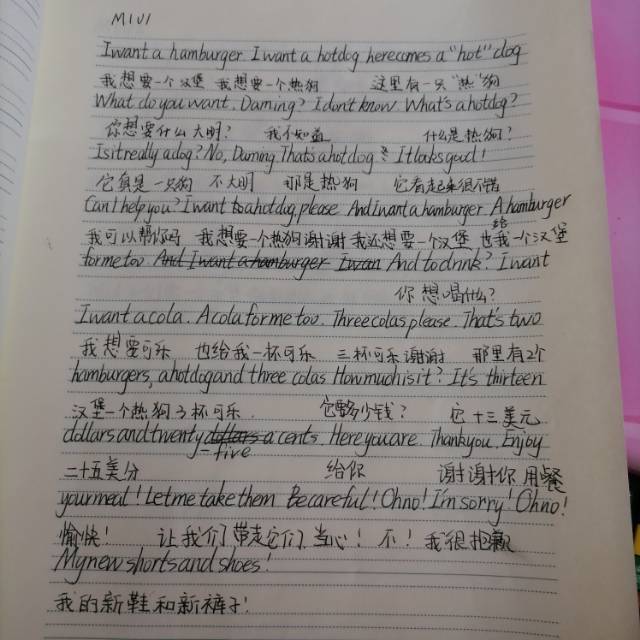 M1U1
I want a hamburger I want a hotdog here comes a "hot" dog
我想要一个汉堡 我想要一个热狗 这里有一只"热"狗
What do you want, Daming? I don't know. What's a hotdog?
你想要什么大明? 我不知道 什么是热狗?
Is it really a dog? No, Daming. That's a hotdog. It looks good!
它真是一只狗 不大明 那是热狗 它看起来很不错
Can I help you? I want to a hotdog, please And I want a hamburger. A hamburger
我可以帮你吗 我想要一个热狗谢谢 我还想要一个汉堡 也给我一个汉堡
for me too And I want a hamburger I wan And to drink? I want
你想喝什么?
I want a cola. A cola for me too. Three colas please. That's two
我想要可乐 也给我一杯可乐 三杯可乐谢谢 那里有2个
hamburgers, a hotdog and three colas How much is it? It's thirteen
汉堡一个热狗3杯可乐. 它多少钱? 它十三美元
dollars and twenty dollars a cents. Here you are. Thank you. Enjoy
-five
二十五美分 给你 谢谢你 用餐
your meal! Let me take them Be careful! Oh no! I'm sorry! Oh no!
愉快! 让我们带走它们 当心! 不! 我很抱歉
My new shorts and shoes!
我的新鞋和新裤子!